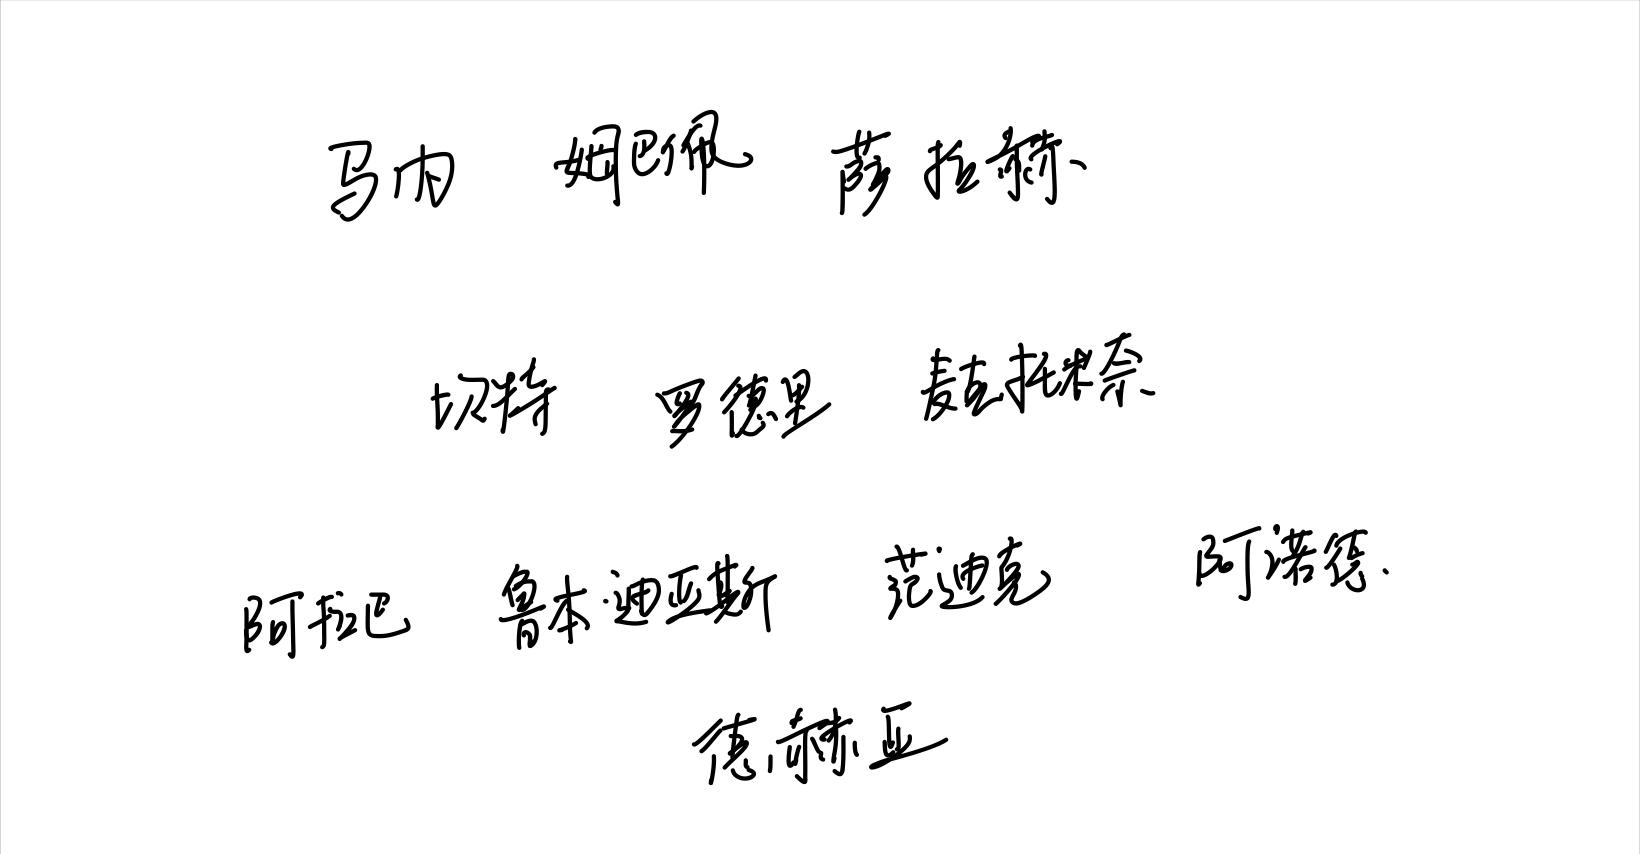 马内 姆巴佩 萨拉赫
坎特 罗德里 麦克托米奈
阿拉巴 鲁本·迪亚斯 范迪克 阿诺德.
德.赫亚